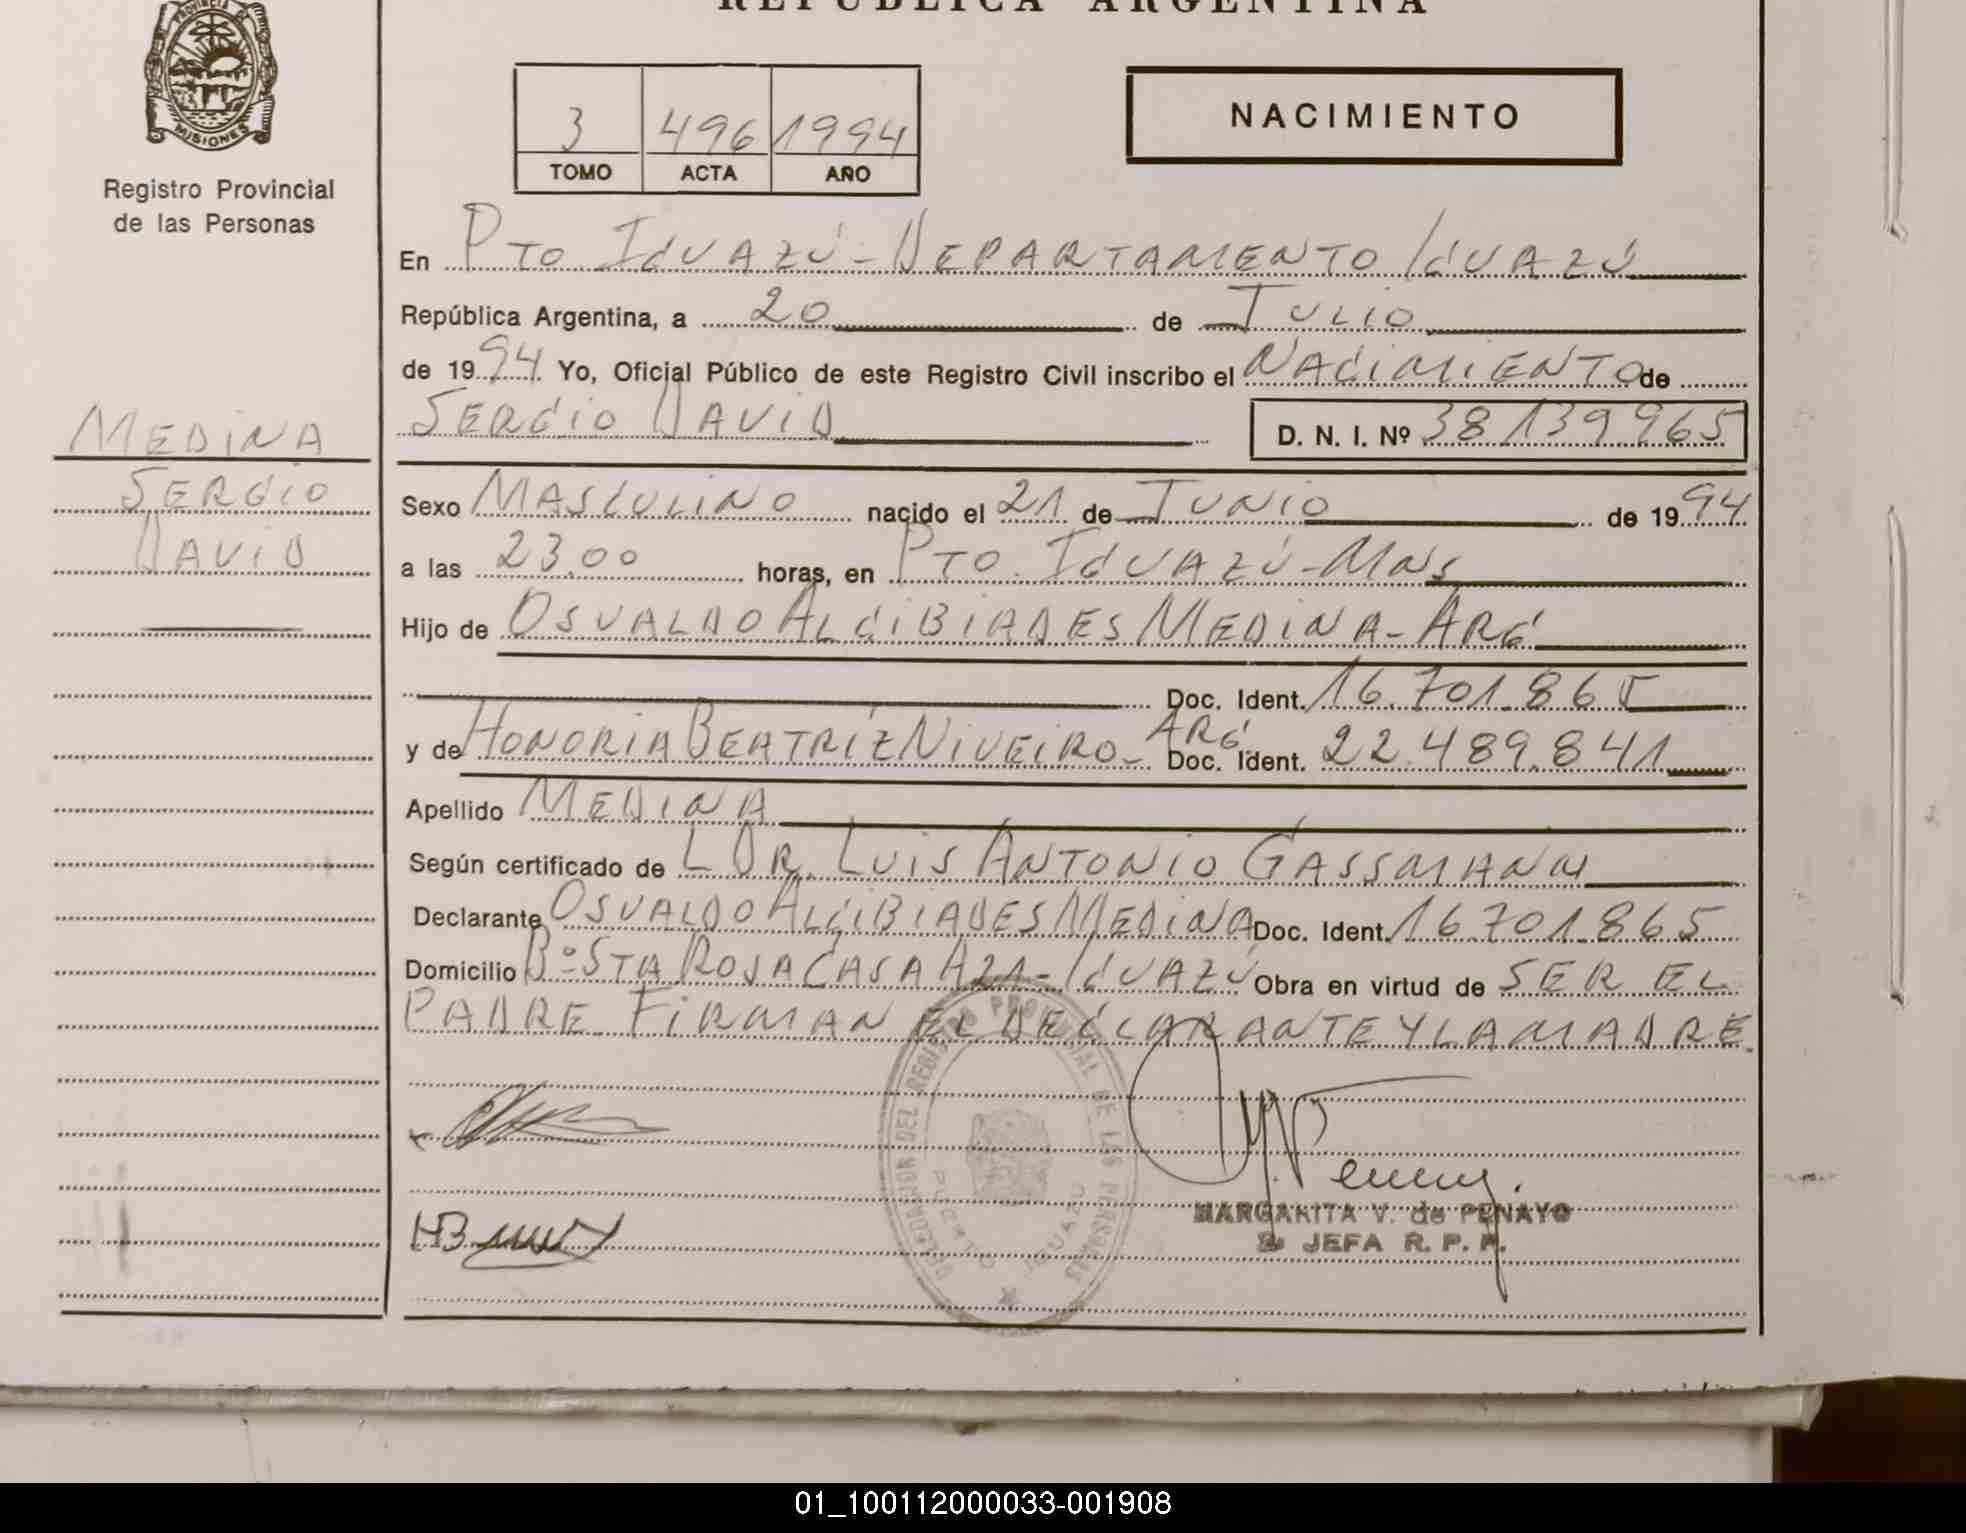 REPUBLICA ARGENTINA
PROVINCIA DE
MISIONES
Registro Provincial
de las Personas
3 496 1994
TOMO ACTA AÑO
NACIMIENTO
En PTO IGUAZÚ - DEPARTAMENTO IGUAZÚ
República Argentina, a 20 de JULIO
de 1994 Yo, Oficial Público de este Registro Civil inscribo el NACIMIENTO de
SERGIO DAVID D. N. I. Nº 38139965
MEDINA
SERGIO
DAVID
Sexo MASCULINO nacido el 21 de JUNIO de 1994
a las 23.00 horas, en PTO. IGUAZÚ - Mns
Hijo de OSVALDO ALCIBIADES MEDINA - ARG
Doc. Ident. 16.701.865
y de HONORIA BEATRÍZ NIVEIRO - ARG. Doc. Ident. 22.489.841
Apellido MEDINA
Según certificado de L DR. LUIS ANTONIO GASSMANN
Declarante OSVALDO ALCIBIADES MEDINA Doc. Ident. 16.701.865
Domicilio Bº STA ROSA CASA A21 - IGUAZÚ Obra en virtud de SER EL
PADRE. FIRMAN EL DECLARANTE Y LA MADRE.
DELEGACION DEL REGISTRO PROVINCIAL DE LAS PERSONAS
PUERTO IGUAZU
MARGARITA V. de PENAYO
JEFA R. P. P.
01_100112000033-001908